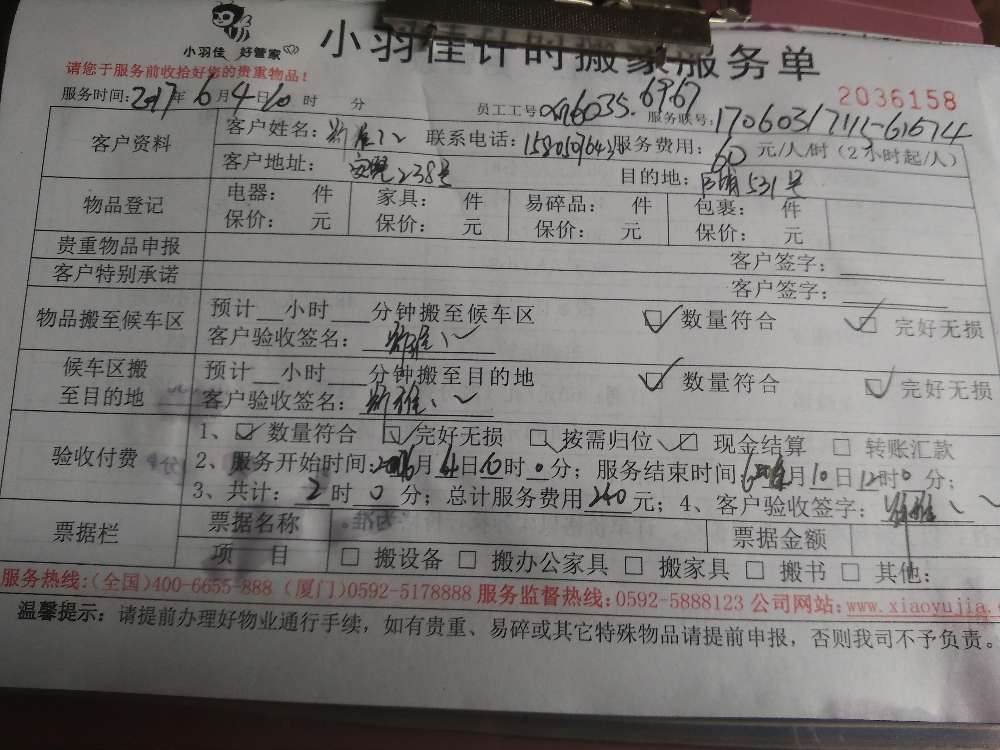 小羽佳 好管家
小羽佳计时搬家服务单
请您于服务前收拾好您的贵重物品!
2036158
服务时间:2017年6月4日10时 分 员工工号 6967 服务联号:
客户资料 客户姓名: 联系电话: 服务费用:60元/人/时(2小时起/人)
客户地址: 238号 目的地: 531号
物品登记 电器: 件 家具: 件 易碎品: 件 包裹: 件
保价: 元 保价: 元 保价: 元 保价: 元
贵重物品申报 客户签字:
客户特别承诺 客户签字:
物品搬至候车区 预计__小时___分钟搬至候车区 数量符合 完好无损
客户验收签名:
候车区搬至目的地 预计__小时___分钟搬至目的地 数量符合 完好无损
客户验收签名:
验收付费 1、数量符合 完好无损 按需归位 现金结算 转账汇款
2、服务开始时间: 月4日10时0分;服务结束时间: 月10日12时0分;
3、共计:2时0分;总计服务费用240元;4、客户验收签字:
票据栏 票据名称 票据金额
项 目 搬设备 搬办公家具 搬家具 搬书 其他:
服务热线:(全国)400-6655-888 (厦门)0592-5178888 服务监督热线:0592-5888123 公司网站:www.xiaoyujia.
温馨提示:请提前办理好物业通行手续,如有贵重、易碎或其它特殊物品请提前申报,否则我司不予负责。